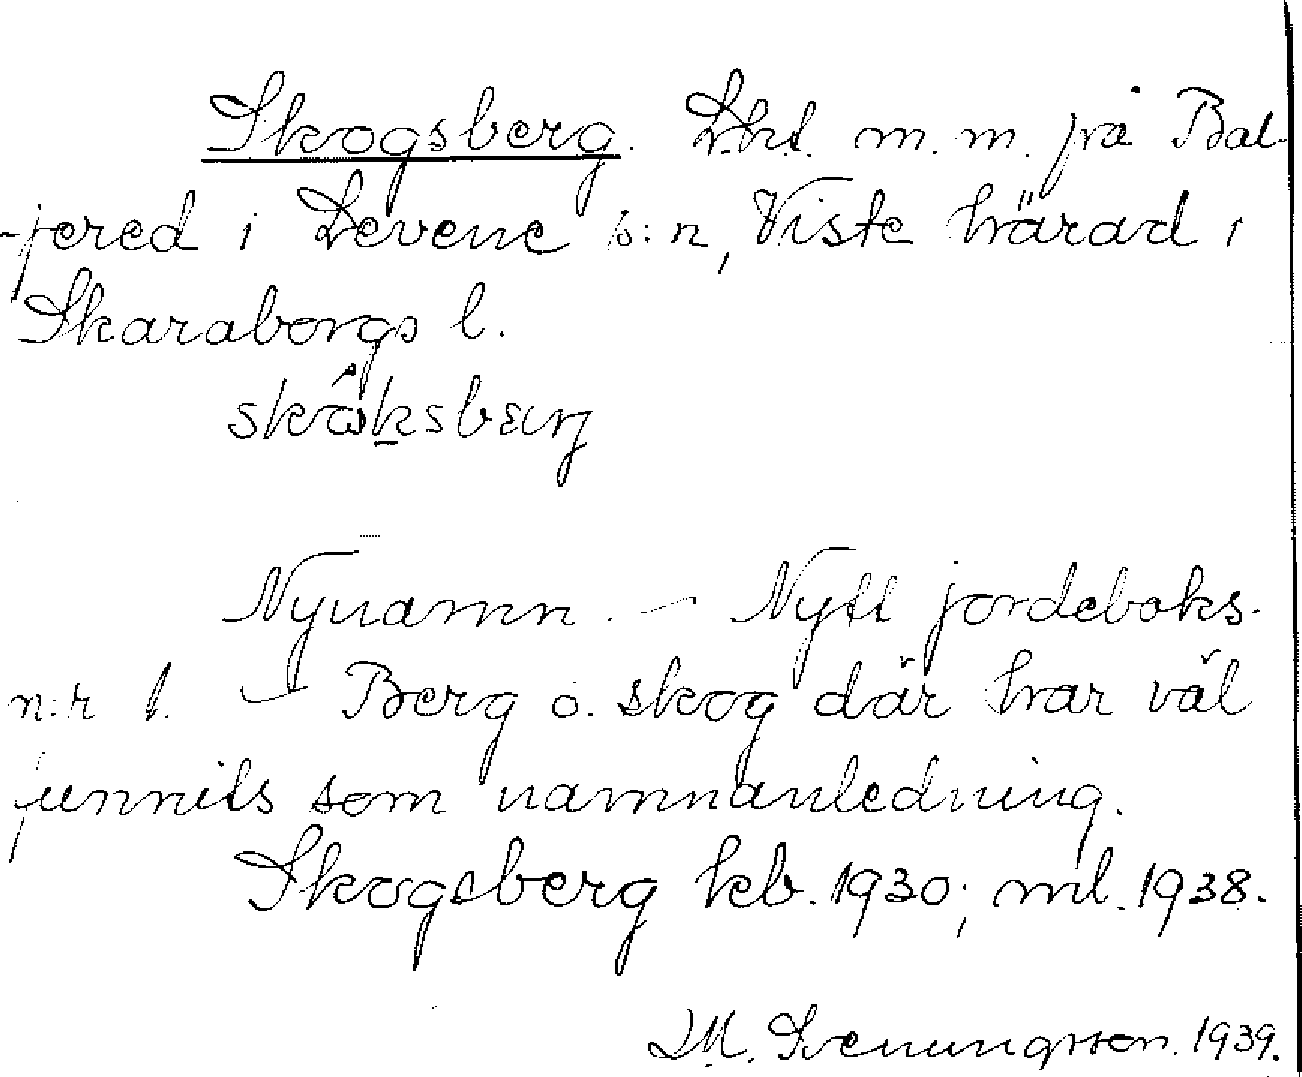 Skogsberg. Lht. m.m. på Bal-
-jered i Levene s:n, Viste härad i
Skaraborgs l.
Nynamn. — Nytt jordeboks-
n:r 1. — Berg o. skog där har väl
funnits som namnanledning.
Skogsberg kb. 1930; ml. 1938.
M. Svenungsson. 1939.